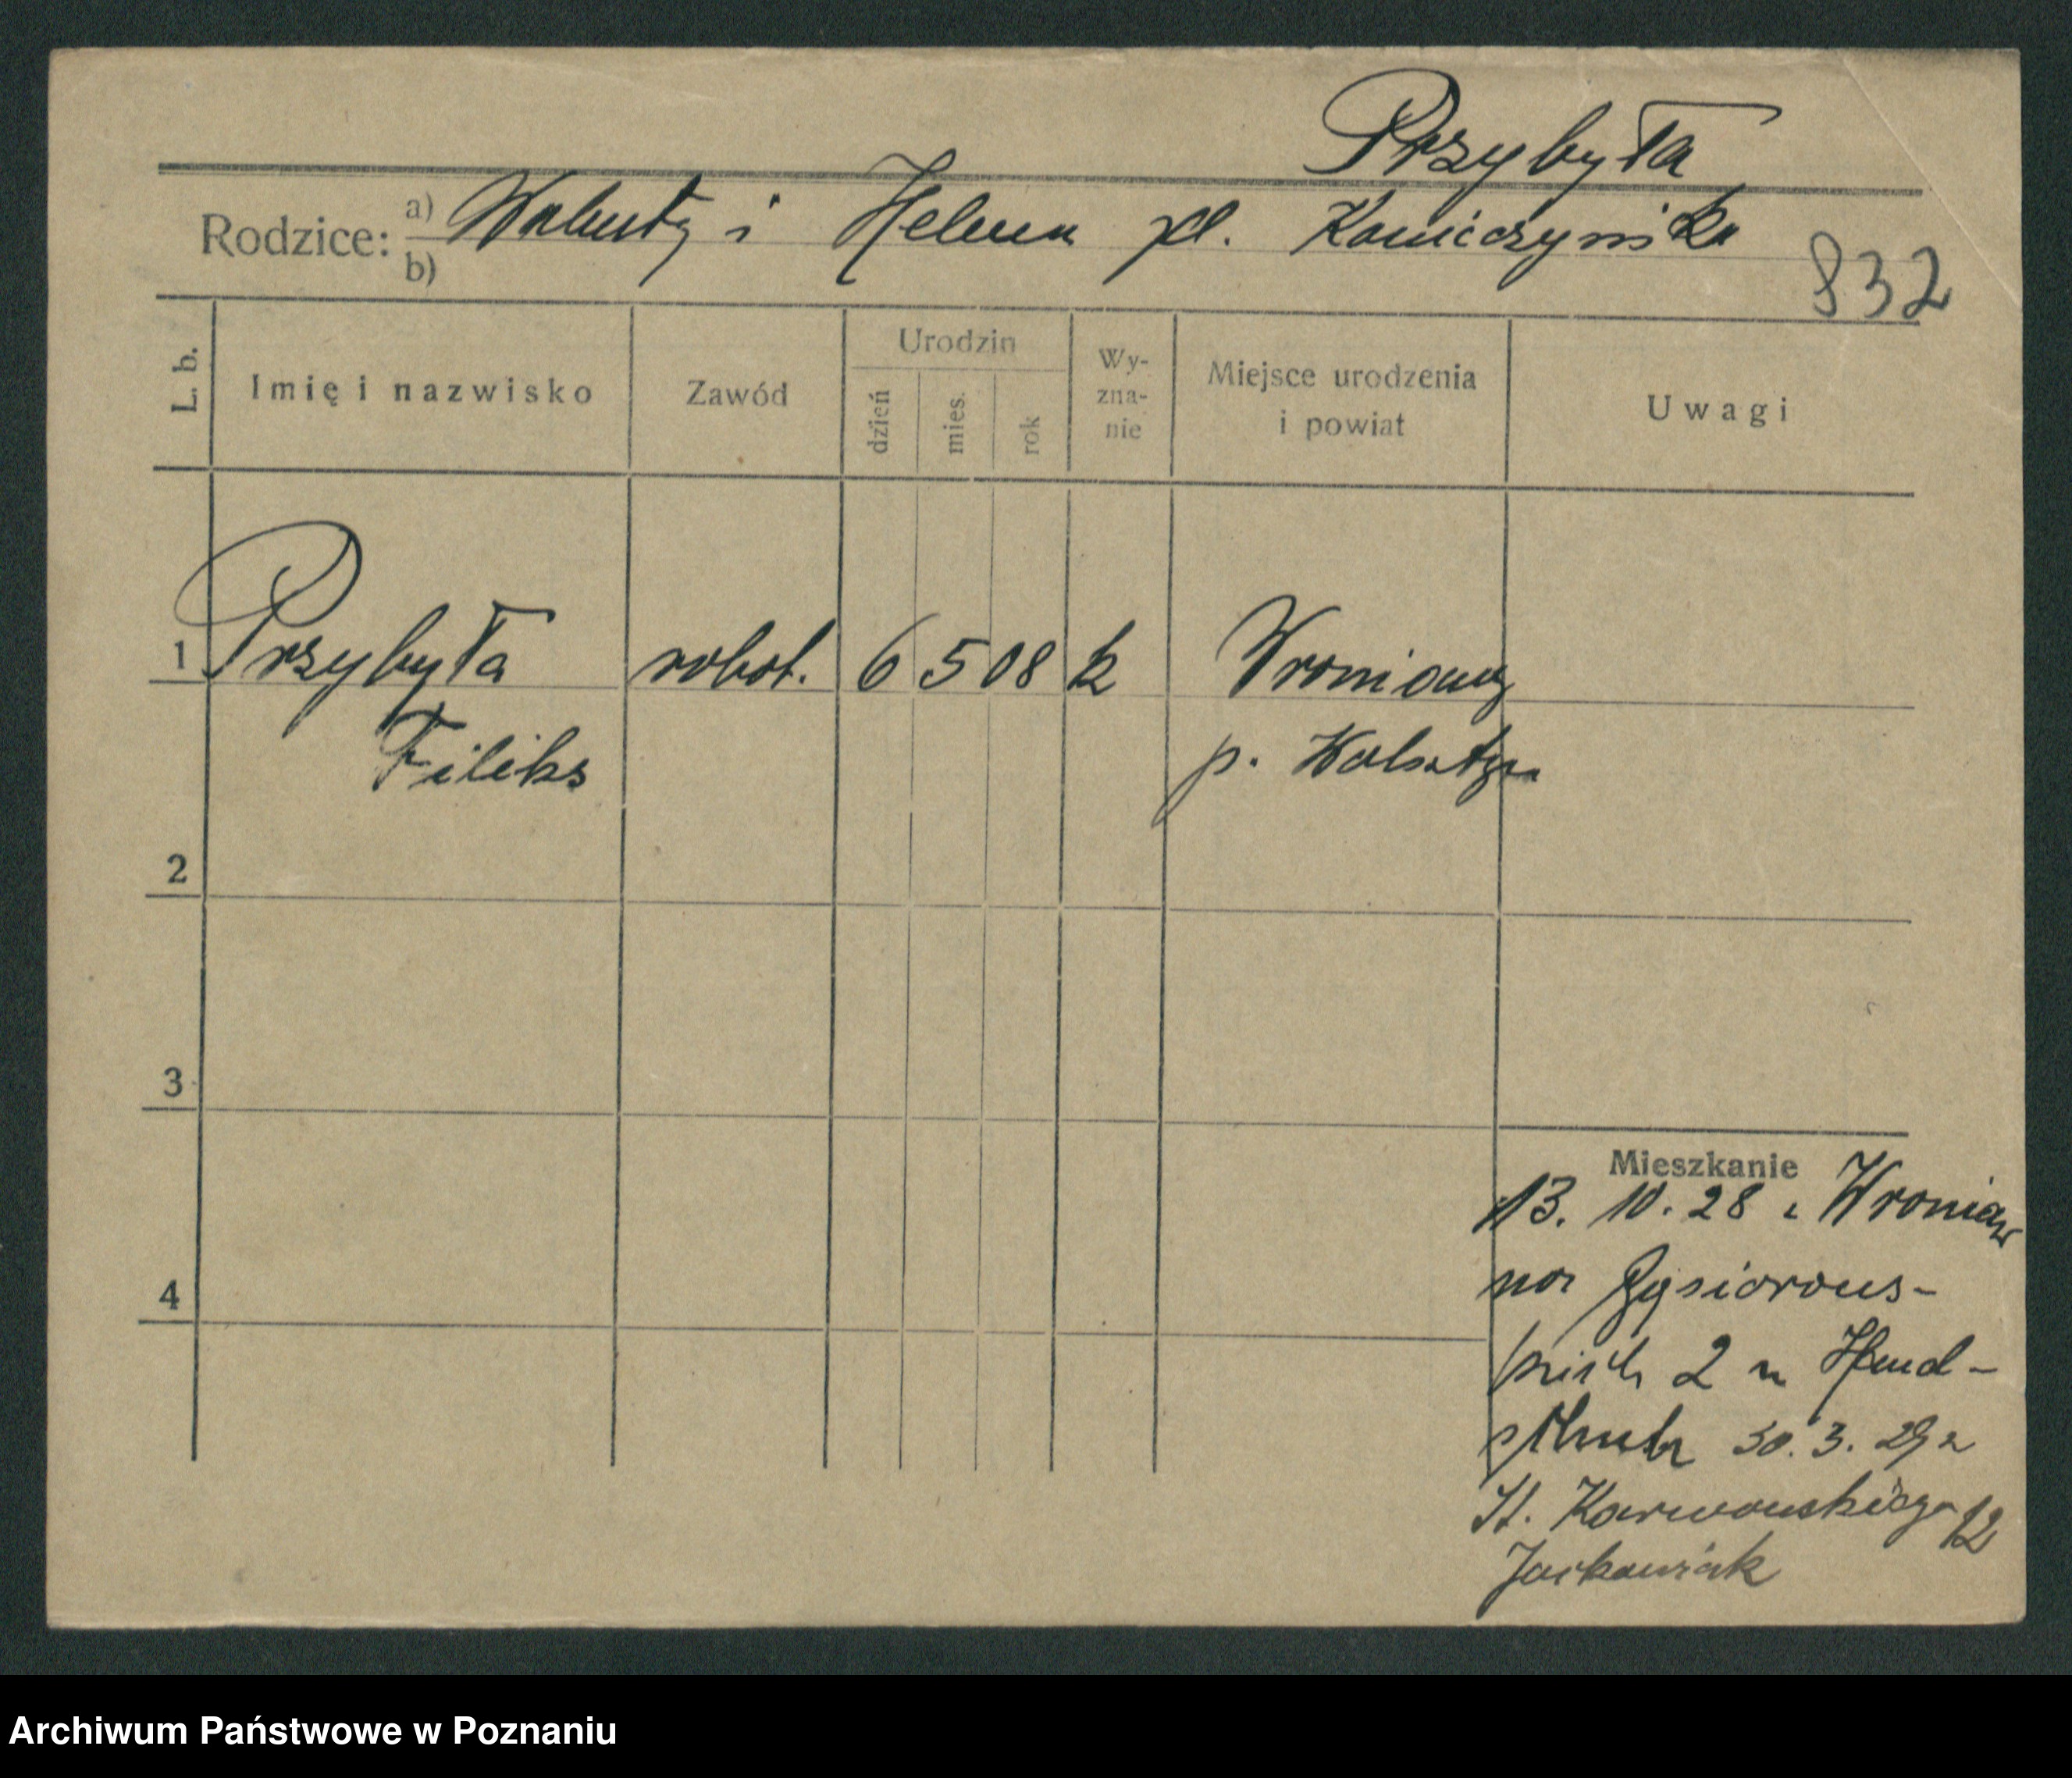 Przybyła
Rodzice: a) Walenty i Helena zd. Konieczyńska
b)
832
L. b.
Imię i nazwisko
Zawód
Urodzin
dzień
mies.
rok
Wy-
zna-
nie
Miejsce urodzenia
i powiat
Uwagi
1 Przybyła robot. 6 5 08 k Wroniawy
Filiks p. Wolsztyn
2
3
4
Mieszkanie
13. 10. 28 z Wroniaw
na Gąsiorows-
kich 2 u
30. 3. 29 z
St. Karwowskiego 12
Jackowiak
Archiwum Państwowe w Poznaniu